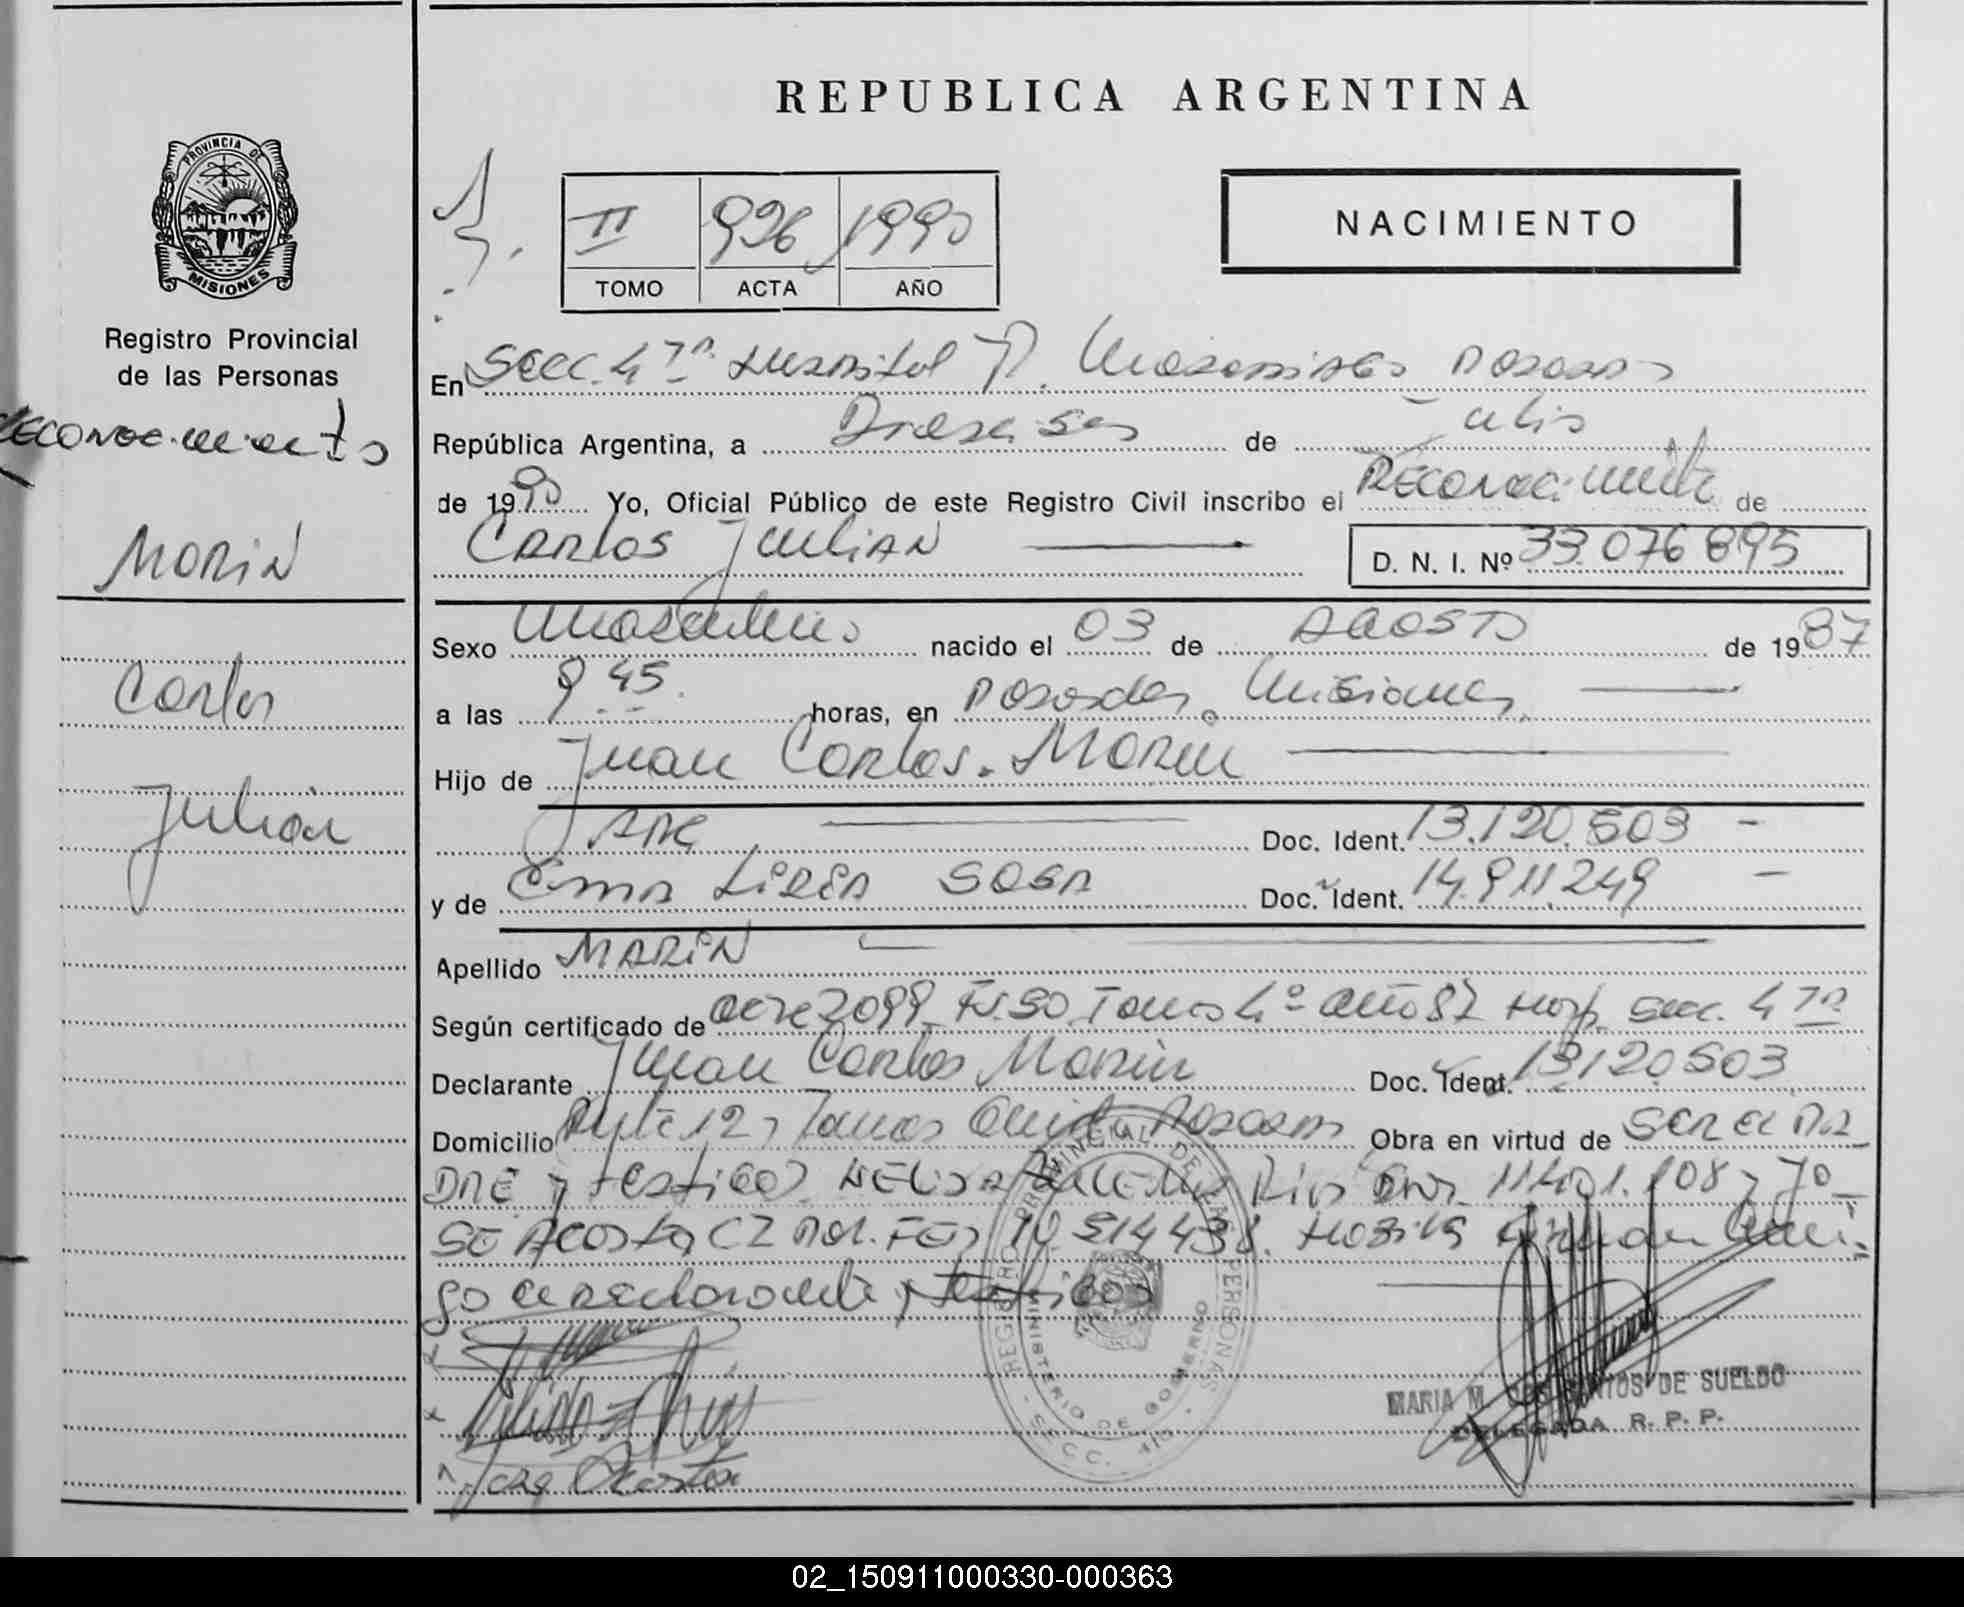 REPUBLICA ARGENTINA
PROVINCIA DE
MISIONES
Registro Provincial
de las Personas
Reconocimiento
MORIN
Carlos
Julian
II 926 1990
TOMO ACTA AÑO
NACIMIENTO
En Secc. 4ta Hospital R. Posadas
República Argentina, a Dieciseis de Julio
de 1990 Yo, Oficial Público de este Registro Civil inscribo el Reconocimiento de
Carlos Julian D. N. I. Nº 33.076.895
Sexo Masculino nacido el 03 de AGOSTO de 1987
a las 9 45 horas, en Posadas, Misiones
Hijo de Juan Carlos Morin
ARG Doc. Ident. 13.120.503
y de Ema Lidia SOSA Doc. Ident. 14.911.249
Apellido MORIN
Según certificado de acta 2099 Fs. 50 Tomo 4º año 87 Hosp. Secc. 4ta
Declarante Juan Carlos Morin Doc. Ident. 13.120.503
Domicilio Ruta 12 Posadas Obra en virtud de SER EL PA
DRE y testigos y Jo
SE Acosta 10 514 438. conmi
go el declarante y testigos
REGISTRO PROVINCIAL DE LAS PERSONAS
MINISTERIO DE GOBIERNO
SECC. 4ta
Jose Acosta
MARIA M. DE SUELDO
DELEGADA R. P. P.
02_150911000330-000363